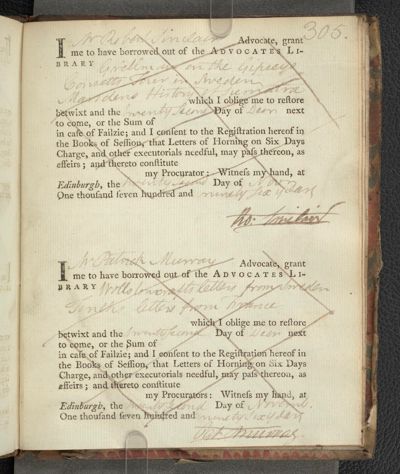 305.
I Mr Robert Sinclair Advocate, grant
me to have borrowed out of the ADVOCATES LI-
BRARY Grellman on the Gipseys
Consetts Tour in Sweden
Marsdens History of Sumatra
which I oblige me to restore
betwixt and the twenty second Day of Decr next
to come, or the Sum of
in case of Failzie; and I consent to the Registration hereof in
the Books of Session, that Letters of Horning on Six Days
Charge, and other executorials needful, may pass thereon, as
effeirs; and thereto constitute
my Procurator: Witness my hand, at
Edinburgh, the twenty second Day of Novr
One thousand seven hundred and ninety six years
Ro. Sinclair
I Mr Patrick Murray Advocate, grant
me to have borrowed out of the ADVOCATES LI-
BRARY Wollstonecrafts letters from Sweden
letters from France
which I oblige me to restore
betwixt and the twenty second Day of Decr next
to come, or the Sum of
in case of Failzie; and I consent to the Registration hereof in
the Books of Session, that Letters of Horning on Six Days
Charge, and other executorials needful, may pass thereon, as
effeirs; and thereto constitute
my Procurators: Witness my hand, at
Edinburgh, the twenty second Day of Novr
One thousand seven hundred and ninety six years
Pat. Murray